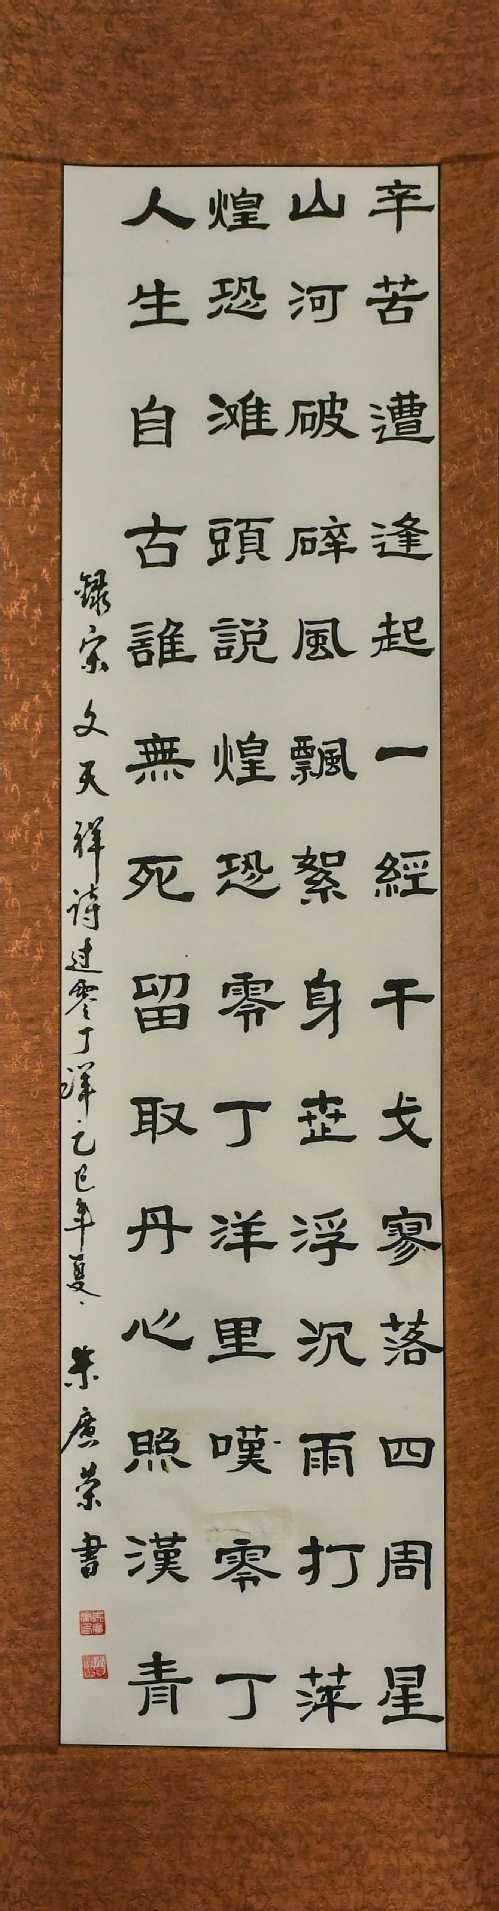 辛苦遭逢起一經干戈寥落四周星
山河破碎風飄絮身世浮沉雨打萍
煌恐滩頭説煌恐零丁洋里嘆零丁
人生自古誰無死留取丹心照漢青
録宋文天祥詩过零丁洋乙巳年夏朱廣荣書